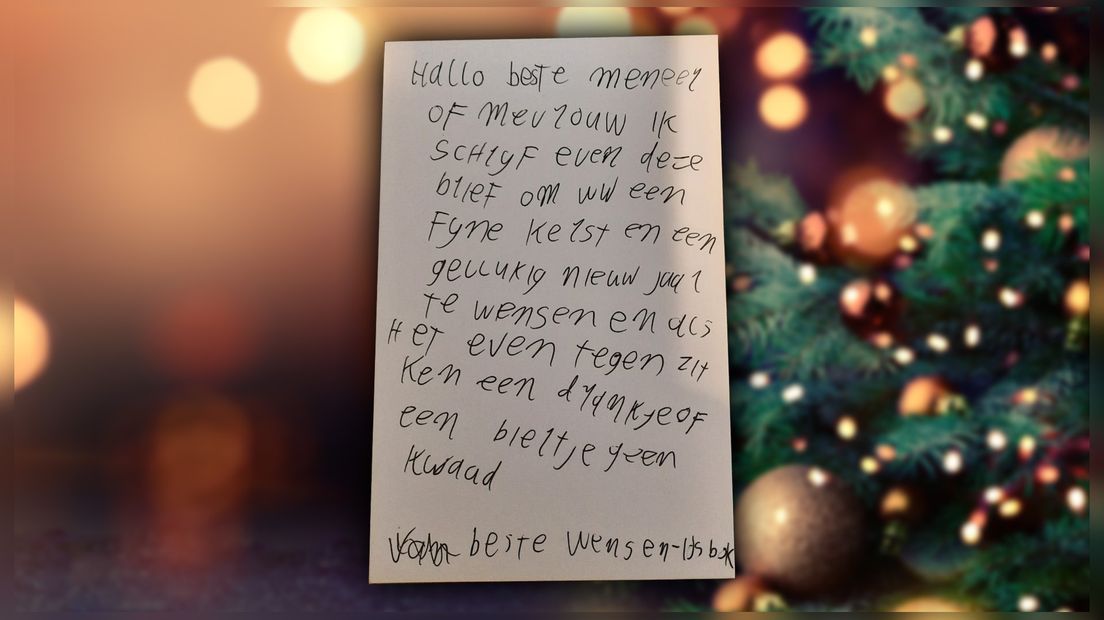 Hallo beste meneer
of mevrouw ik
schryf even deze
brief om uw een
fyne kerst en een
gellukig nieuw jaar
te wensen en als
het even tegen zit
ken een drankje of
een biertje geen
kwaad
beste wensen